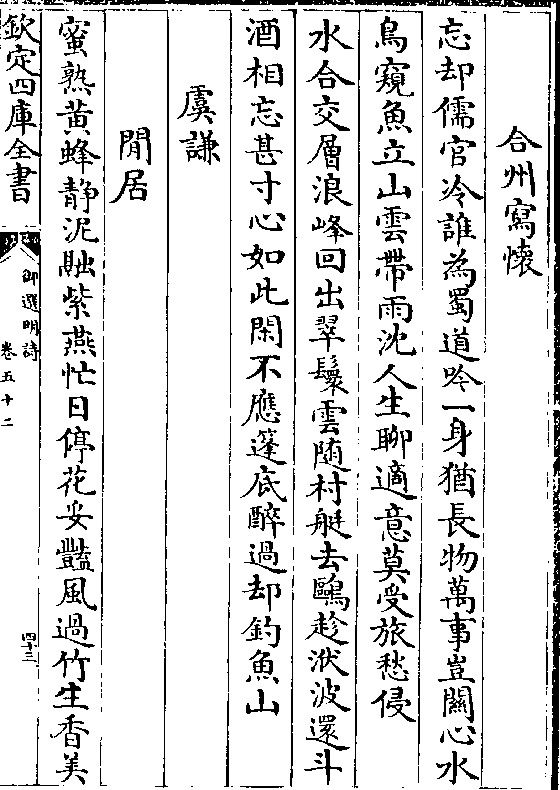 合州寫懷
忘却儒官冷誰為蜀道吟一身猶長物萬事豈關心水
鳥窺魚立山雲帶雨沈人生聊適意莫受旅愁侵
水合交層浪峰回出翠鬟雲随村艇去鷗趁洑波還斗
酒相忘甚寸心如此閑不應篷底醉過却釣魚山
虞謙
閒居
蜜熟黄蜂静泥融紫燕忙日停花妥豔風過竹生香美
欽定四庫全書
御選明詩
卷五十二
四十三